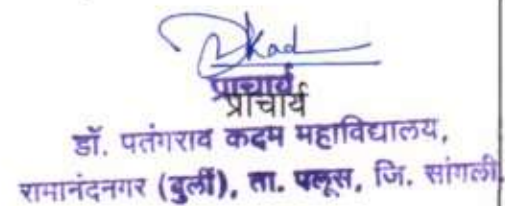 प्राचार्य
प्राचार्य
डॉ. पतंगराव कदम महाविद्यालय,
रामानंदनगर (बुर्ली), ता. पलूस, जि. सांगली.